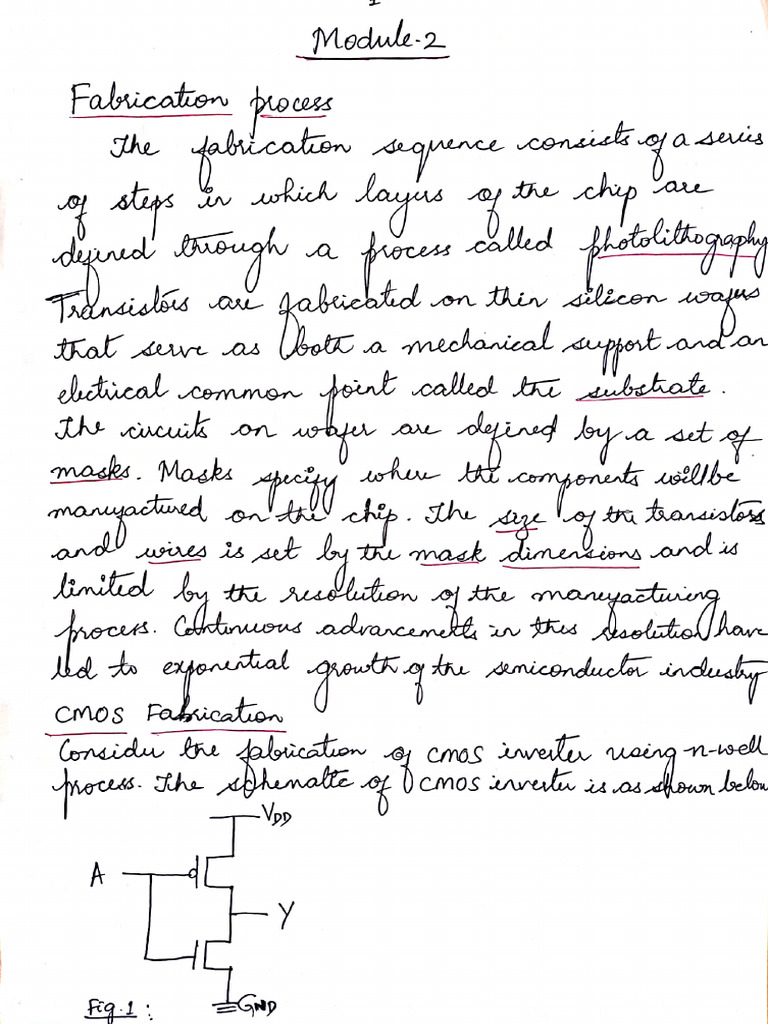 1
Module-2
Fabrication process
The fabrication sequence consists of a series
of steps in which layers of the chip are
defined through a process called photolithography
Transistors are fabricated on thin silicon wafers
that serve as both a mechanical support and an
electrical common point called the substrate.
The circuits on wafer are defined by a set of
masks. Masks specify where the components will be
manufactured on the chip. The size of the transistors
and wires is set by the mask dimensions and is
limited by the resolution of the manufacturing
process. Continuous advancements in this resolution have
led to exponential growth of the semiconductor industry
CMOS Fabrication
Consider the fabrication of CMOS inverter using n-well
process. The schematic of CMOS inverter is as shown below
VDD
A
Y
GND
Fig.1 :